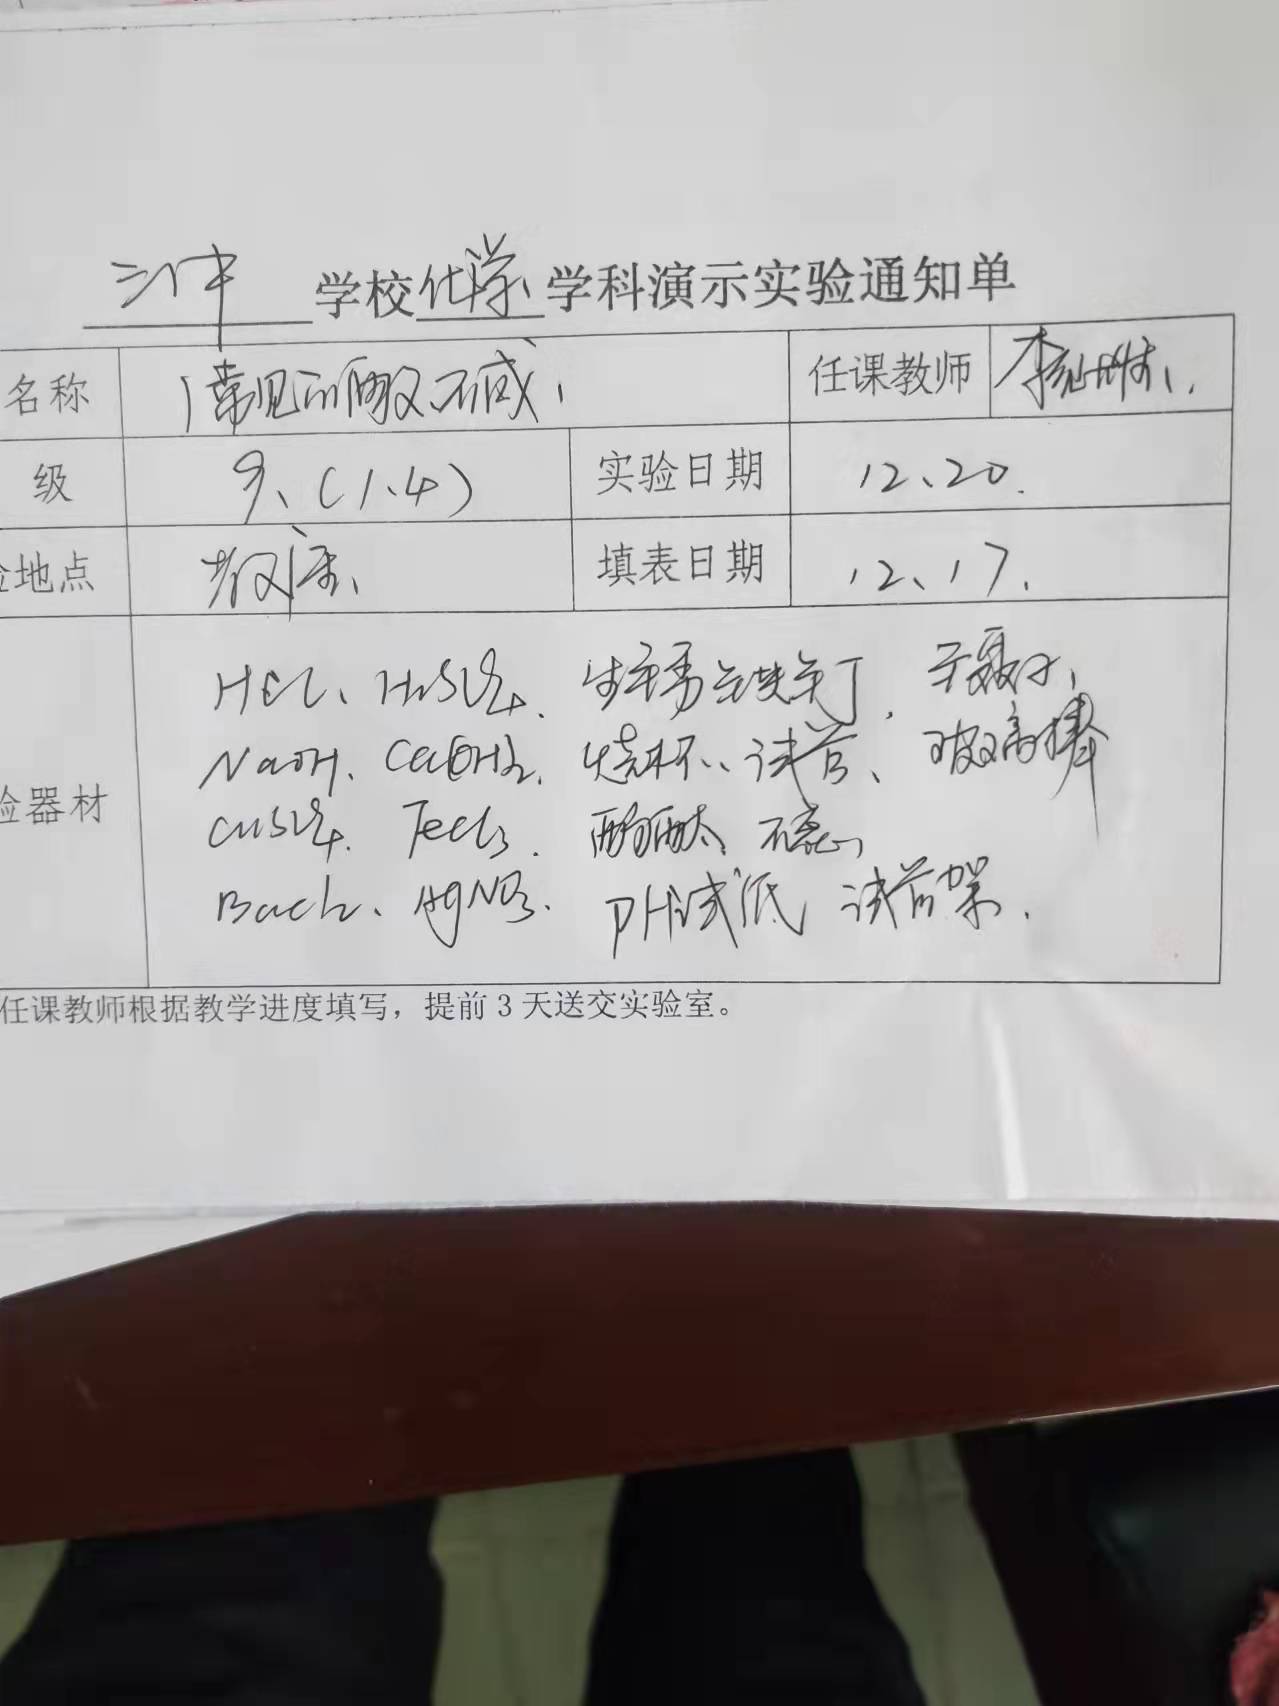 三中 学校 化学 学科演示实验通知单
名称 常见的酸和碱 任课教师 李
级 9、(1.4) 实验日期 12、20.
验地点 教室、 填表日期 12、17.
HCl、H2SO4、生锈铁钉、
NaOH、Ca(OH)2、烧杯、试管、玻离棒
验器材
CuSO4、FeCl3、酚酞、石蕊、
BaCl2、AgNO3、PH试纸 试管架、
任课教师根据教学进度填写，提前3天送交实验室。